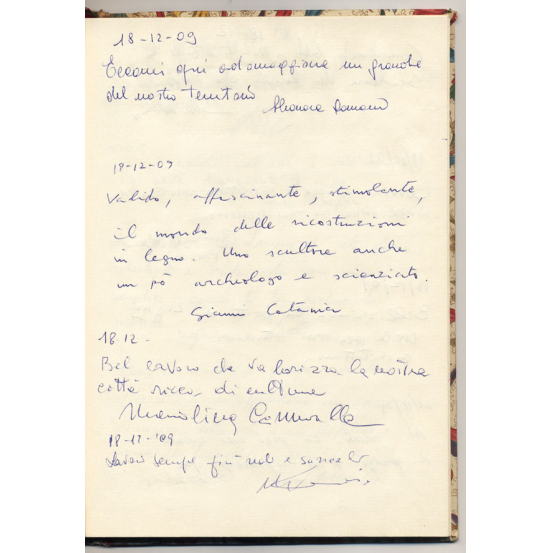 18-12-09
Eccomi qui ad omaggiare un grande
del nostro territorio
Eleonora Romano
18-12-09
Valido, affascinante, stimolante,
il mondo delle ricostruzioni
in legno. Uno scultore anche
un pò archeologo e scienziato.
Gianni Catania
18 12 -
Bel lavoro che valorizza la nostra
città ricca di cultura
18-12-'09
sempre più